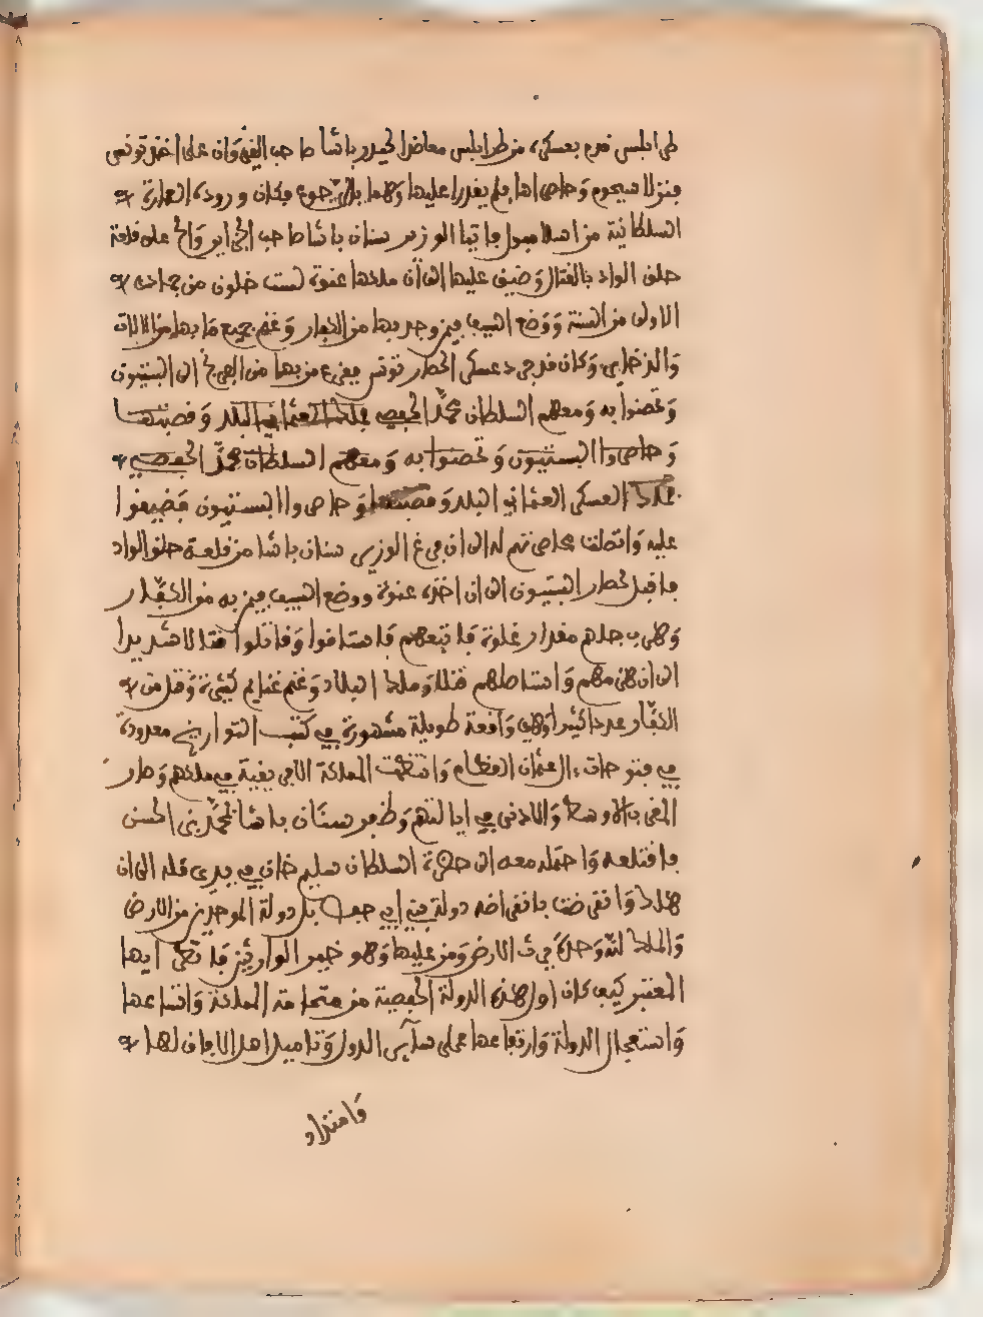 طرابلس قدم بعسكره من طرابلس معاضدا لحيدر باشا صاحب القيروان على اخذ تونس
فنزلا سيجوم وحاصراها فلم يقدرا عليها وهما بالرجوع فكان ورود العمارة
السلطانية من اسلامبول فاتيا الوزير سنان باشا صاحب الجزاير والح على قلعة
حلق الواد بالقتال وضيق عليها الى أن ملكها عنوة لست خلون من جمادى
الاولى من السنة ووضع السيف فيمن وجد بها من الكفار وغنم جميع ما بها من الالات
والذخاير وكان قد جرد عسكرا لحصار تونس ففزع من بها من الافرنج الى البستيون
وتحصنوا به ومعهم السلطان محمد الحفصي فملك العثماني البلد وقصبتها
وحاصروا البستيون وتحصنوا به ومعهم السلطان محمد الحفصي
فملك العسكر العثماني البلد وقصبتها وحاصروا البستيون فضيقوا
عليه واتصلت محاصرتهم له الى ان فرغ الوزير سنان باشا من قلعة حلق الواد
فاقبل لحصار البستيون الى ان اخذه عنوة ووضع السيف فيمن به من الكفار
وهرب جلهم مقدار غلوة فاتبعهم فاستافوا وقاتلوا قتالا شديدا
الى ان هزمهم واستاصلهم قتلا وملك البلاد وغنم غنايم كثيرة وقتل من
الكفار عددا كثيرا وهي واقعة طويلة مشهورة في كتب التواريخ معدودة
في فتوحات ءال عثمان العظام وانتظمت المملكة الافريقية في ملكهم وصار
المغرب الاوسط والادنى في ايالتهم وظفر سنان باشا بمحمد بن الحسن
فاقتلعه واحتمله معه الى حضرة السلطان سليم خان في يدى قلد الى ان
هلك وانقرضت بانقراضه دولة بني ابي حفص بل دولة الموحدين من الارض
والملك لله وحده يرث الارض ومن عليها وهو خير الوارثين فانظر ايها
المعتبر كيف كان اول هذه الدولة الحفصية من ضخامة المملكة واتساعها
واستفحال الدولة وارتفاعها على سآير الدول وتاميل اهل الافاق لها
وامتداد